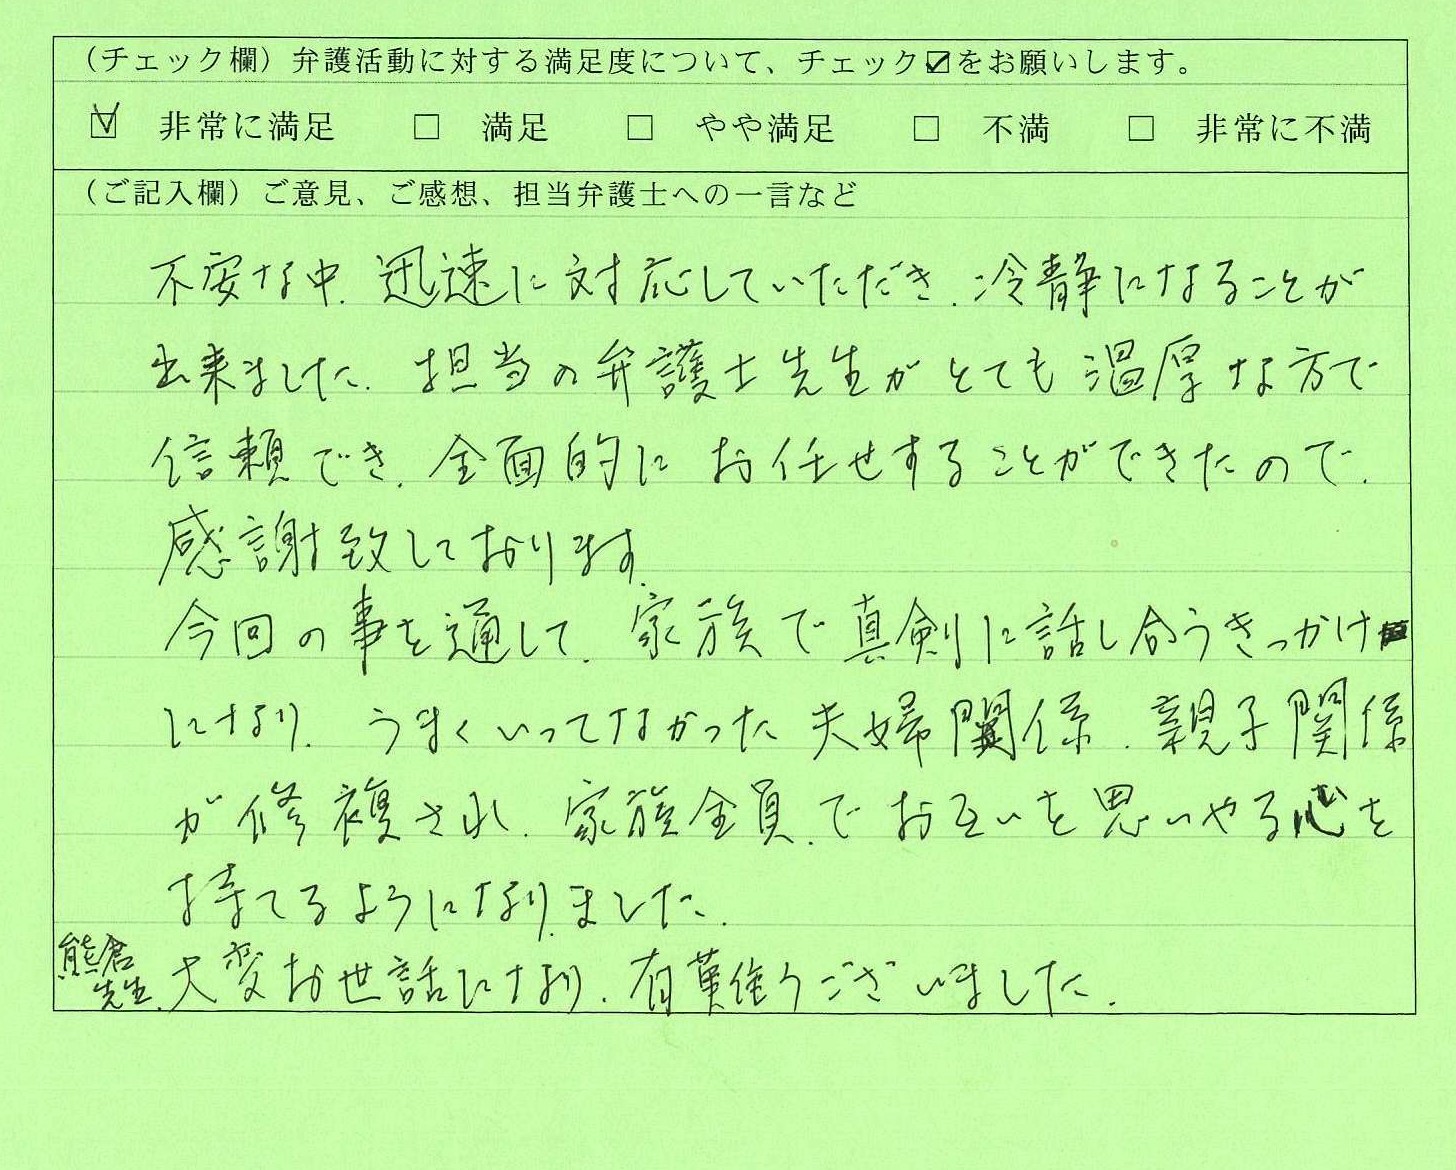 （チェック欄）弁護活動に対する満足度について、チェック☑をお願いします。
☑ 非常に満足 □ 満足 □ やや満足 □ 不満 □ 非常に不満
（ご記入欄）ご意見、ご感想、担当弁護士への一言など
不安な中、迅速に対応していただき、冷静になることが
出来ました。担当の弁護士先生がとても温厚な方で
信頼でき、全面的にお任せすることができたので、
感謝致しております。
今回の事を通して、家族で真剣に話し合うきっかけ
になり、うまくいってなかった夫婦関係、親子関係
が修復され、家族全員でお互いを思いやる心を
持てるようになりました。
熊倉先生、大変お世話になり、有難うございました。